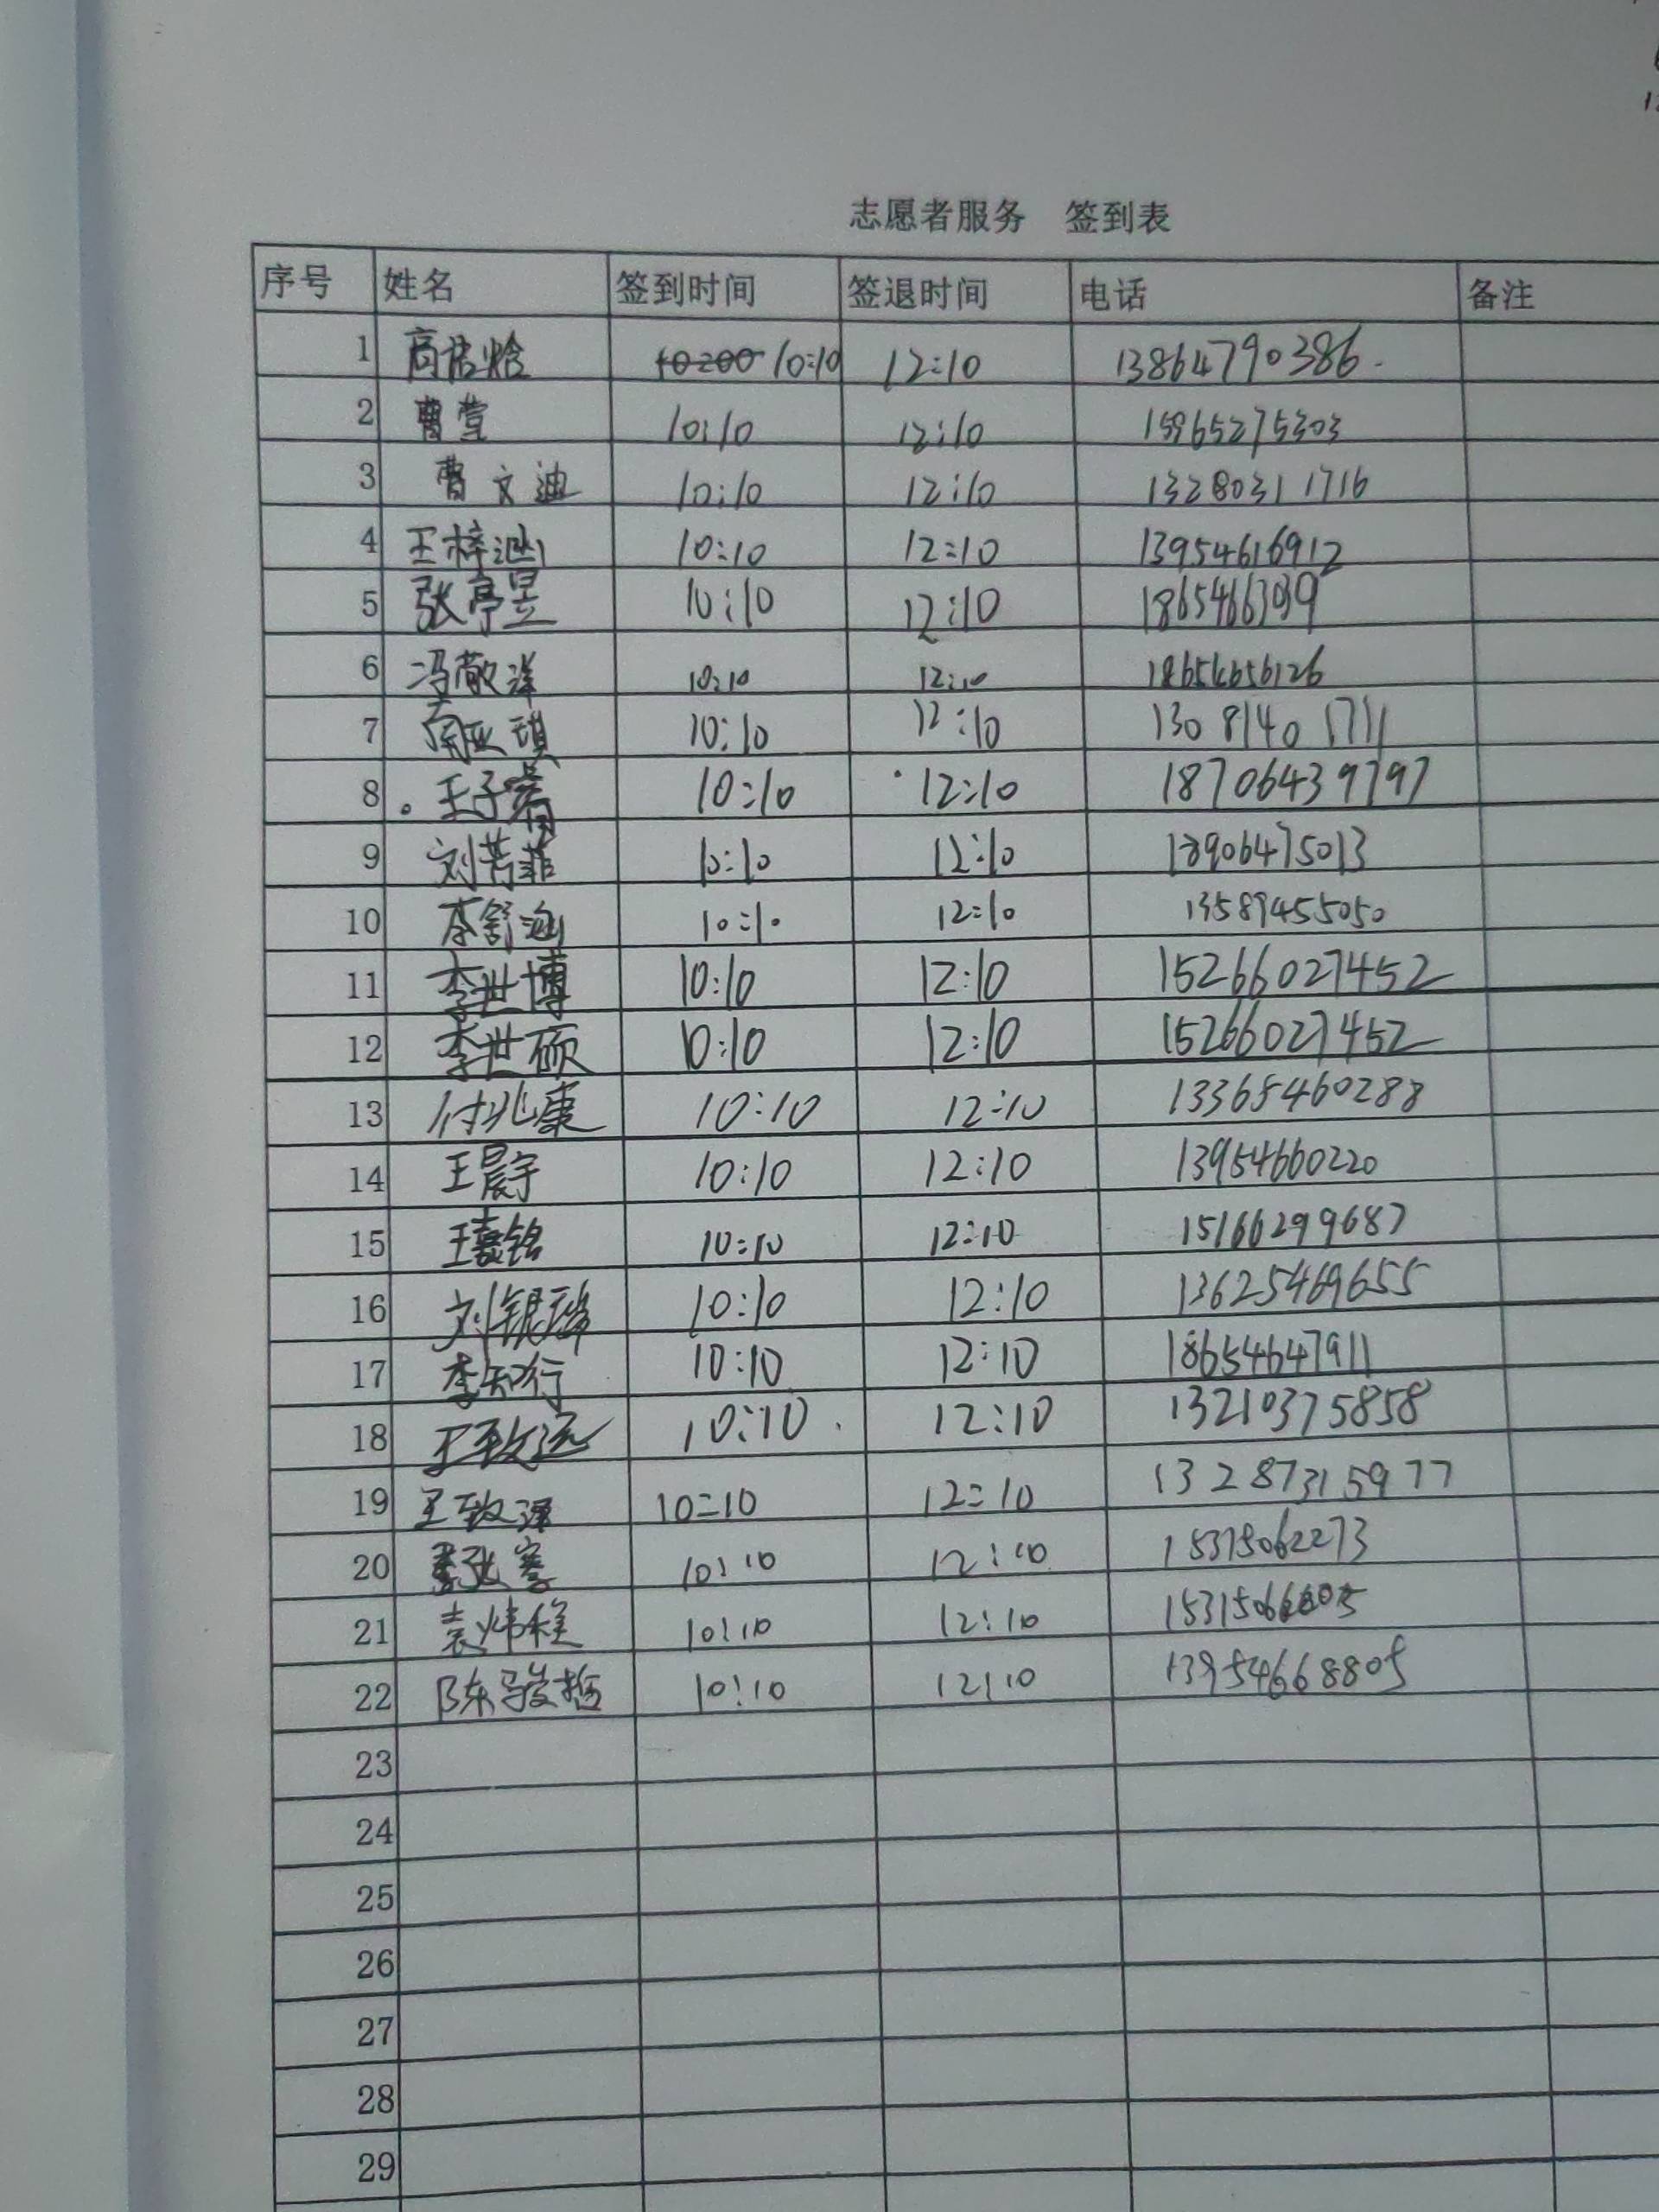 志愿者服务 签到表
序号 姓名 签到时间 签退时间 电话 备注
1 10:10 12:10 13864790386.
2 曹莹 10:10 12:10 15965275303
3 曹文迪 10:10 12:10 13280311716
4 王梓 10:10 12:10 13954616912
5 张亭昱 10:10 12:10
6 冯敬洋 10:10 12:10 18654656126
7 10:10 12:10 13081401711
8 王子睿 10:10 12:10 18706439797
9 刘芳菲 10:10 12:10 18906475013
10 李舒涵 10:10 12:10 13589455050
11 李世博 10:10 12:10 15266027452
12 李世硕 10:10 12:10 15266027452
13 付兆康 10:10 12:10 13365460288
14 王晨宇 10:10 12:10 13954660220
15 10:10 12:10 15166299687
16 刘银 10:10 12:10 13625469655
17 李知行 10:10 12:10 18654647911
18 王致远 10:10 12:10 13210375858
19 王致泽 10:10 12:10 13287315977
20 10:10 12:10 15375062273
21 袁炜程 10:10 12:10
22 陈骏哲 10:10 12:10 13954668805
23
24
25
26
27
28
29